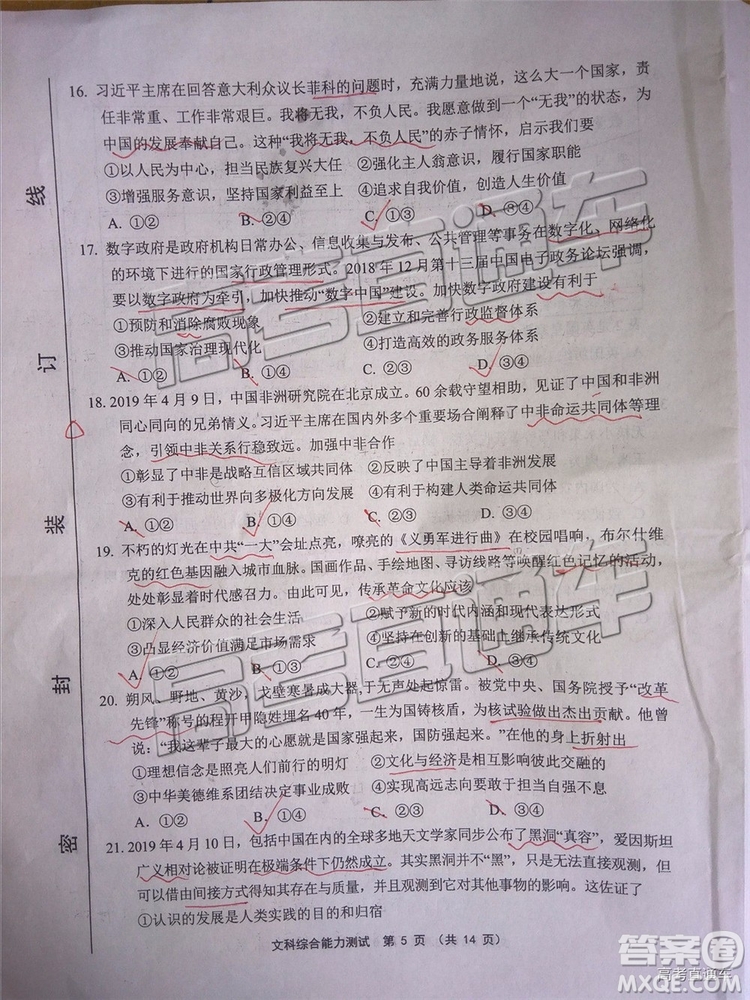 16. 习近平主席在回答意大利众议长菲科的问题时，充满力量地说，这么大一个国家，责
任非常重、工作非常艰巨。我将无我，不负人民。我愿意做到一个“无我”的状态，为
中国的发展奉献自己。这种“我将无我，不负人民”的赤子情怀，启示我们要
①以人民为中心，担当民族复兴大任 ②强化主人翁意识，履行国家职能
③增强服务意识，坚持国家利益至上 ④追求自我价值，创造人生价值
A. ①② B. ②④ C. ①③ D. ③④
17. 数字政府是政府机构日常办公、信息收集与发布、公共管理等事务在数字化、网络化
的环境下进行的国家行政管理形式。2018 年 12 月第十三届中国电子政务论坛强调，
要以数字政府为牵引，加快推动“数字中国”建设。加快数字政府建设有利于
①预防和消除腐败现象 ②建立和完善行政监督体系
③推动国家治理现代化 ④打造高效的政务服务体系
A. ①② B. ①④ C. ②③ D. ③④
18. 2019 年 4 月 9 日，中国非洲研究院在北京成立。60 余载守望相助，见证了中国和非洲
同心同向的兄弟情义。习近平主席在国内外多个重要场合阐释了中非命运共同体等理
念，引领中非关系行稳致远。加强中非合作
①彰显了中非是战略互信区域共同体 ②反映了中国主导着非洲发展
③有利于推动世界向多极化方向发展 ④有利于构建人类命运共同体
A. ①② B. ①④ C. ②③ D. ③④
19. 不朽的灯光在中共“一大”会址点亮，嘹亮的《义勇军进行曲》在校园唱响，布尔什维
克的红色基因融入城市血脉。国画作品、手绘地图、寻访线路等唤醒红色记忆的活动，
处处彰显着时代感召力。由此可见，传承革命文化应该
①深入人民群众的社会生活 ②赋予新的时代内涵和现代表达形式
③凸显经济价值满足市场需求 ④坚持在创新的基础上继承传统文化
A. ①② B. ①③ C. ②④ D. ③④
20. 朔风、野地、黄沙，戈壁寒暑成大器，于无声处起惊雷。被党中央、国务院授予“改革
先锋”称号的程开甲隐姓埋名 40 年，一生为国铸核盾，为核试验做出杰出贡献。他曾
说：“我这辈子最大的心愿就是国家强起来，国防强起来。”在他的身上折射出
①理想信念是照亮人们前行的明灯 ②文化与经济是相互影响彼此交融的
③中华美德维系团结决定事业成败 ④实现高远志向要敢于担当自强不息
A. ①② B. ①④ C. ②③ D. ③④
21. 2019 年 4 月 10 日，包括中国在内的全球多地天文学家同步公布了黑洞“真容”，爱因斯坦
广义相对论被证明在极端条件下仍然成立。其实黑洞并不“黑”，只是无法直接观测，但
可以借由间接方式得知其存在与质量，并且观测到它对其他事物的影响。这佐证了
①认识的发展是人类实践的目的和归宿
文科综合能力测试 第 5 页 （共 14 页）
线
订
装
封
密
高考直通车
高考直通车
答案圈
高考直通车